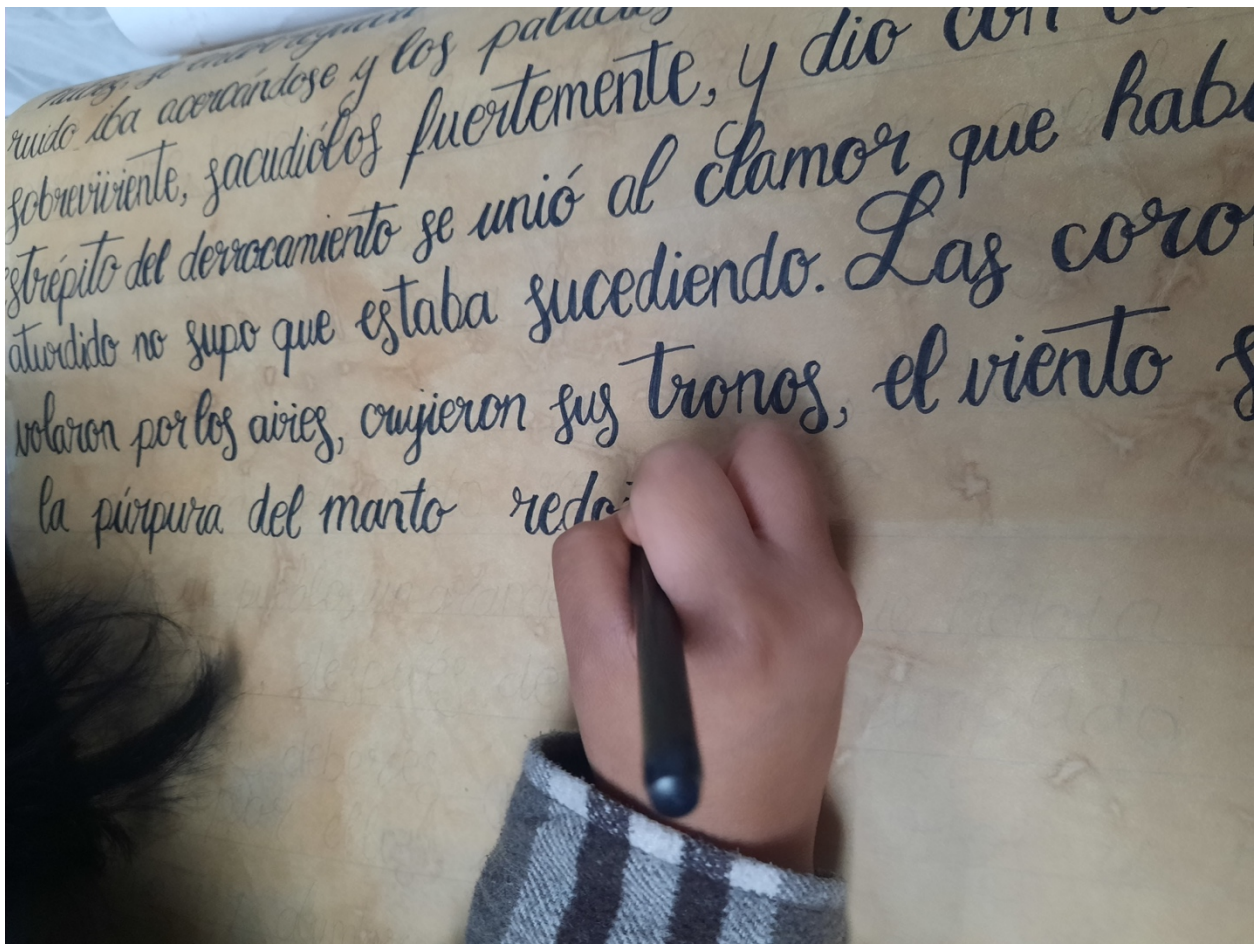 ruido iba acercándose y los palacios
sobreviviente, sacudiólos fuertemente, y dio con
estrépito del derrocamiento se unió al clamor que
aturdido no supo que estaba sucediendo. Las
volaron por los aires, crujieron sus tronos, el viento
la púrpura del manto